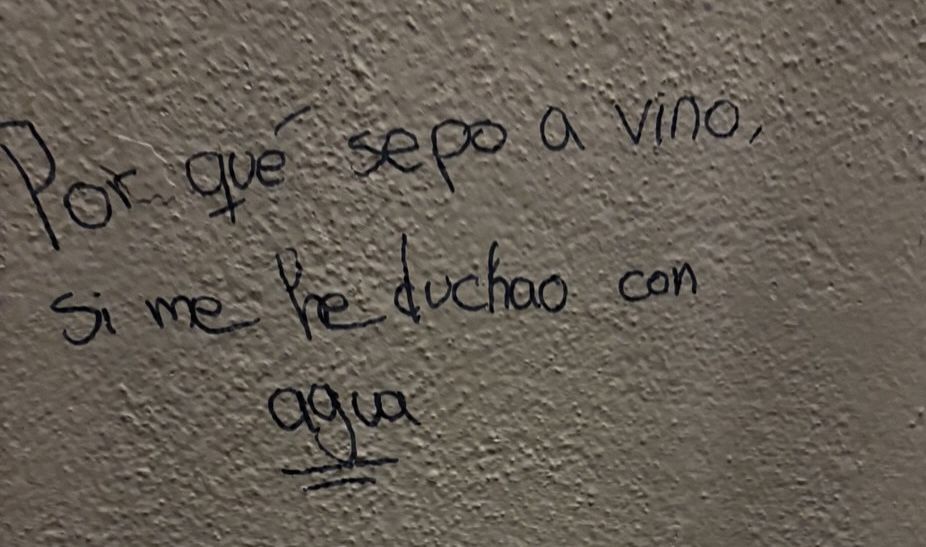 Por qué sepo a vino,
si me he duchao con
agua